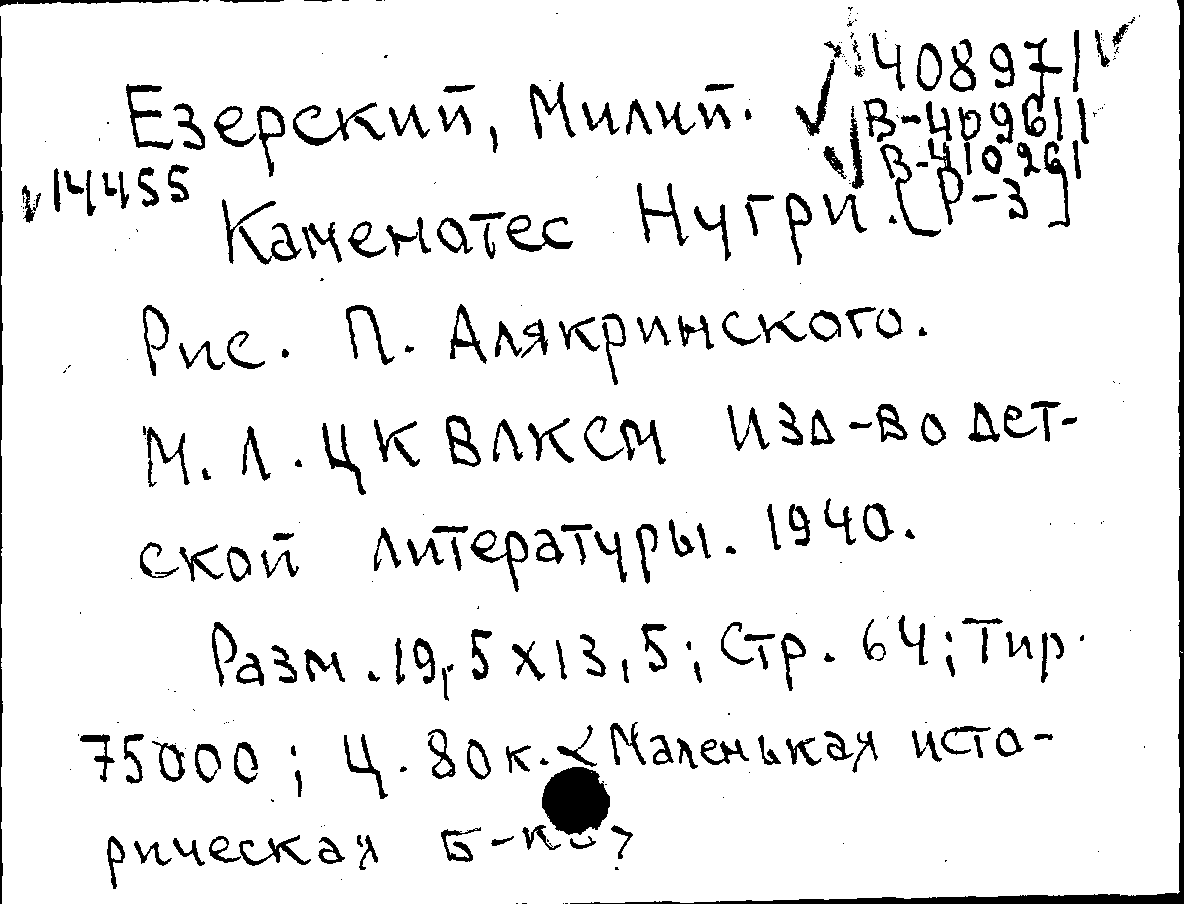 408971
Езерский, Милий.
В-409611
В-410261
14455
Каменотес Нугри. [Р-3]
Рис. П. Алякринского.
М. Л. ЦК ВЛКСМ Изд-во дет-
ской литературы. 1940.
Разм. 19,5х13,5; Стр. 64; Тир.
75000; Ц. 80 к. <Маленькая исто-
рическая б-ка>